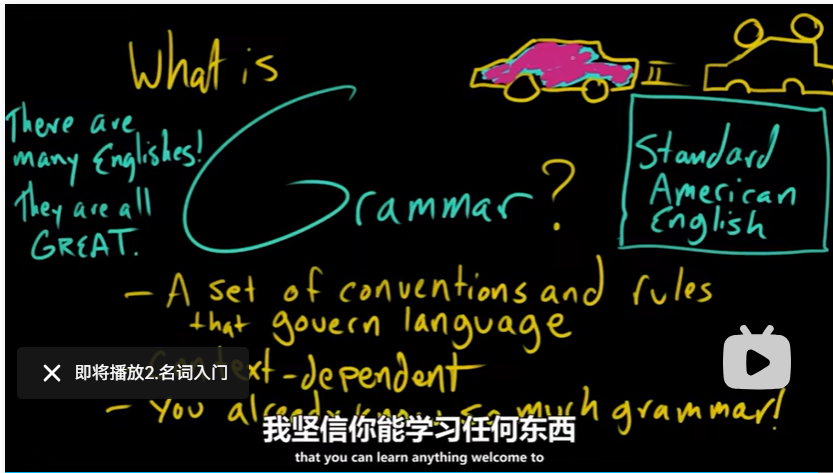 What is
There are
many Englishes!
They are all
GREAT.
Grammar?
Standard
American
English
- A set of conventions and rules
that govern language
即将播放2.名词入门
-dependent
- You already know so much grammar!
我坚信你能学习任何东西
that you can learn anything welcome to